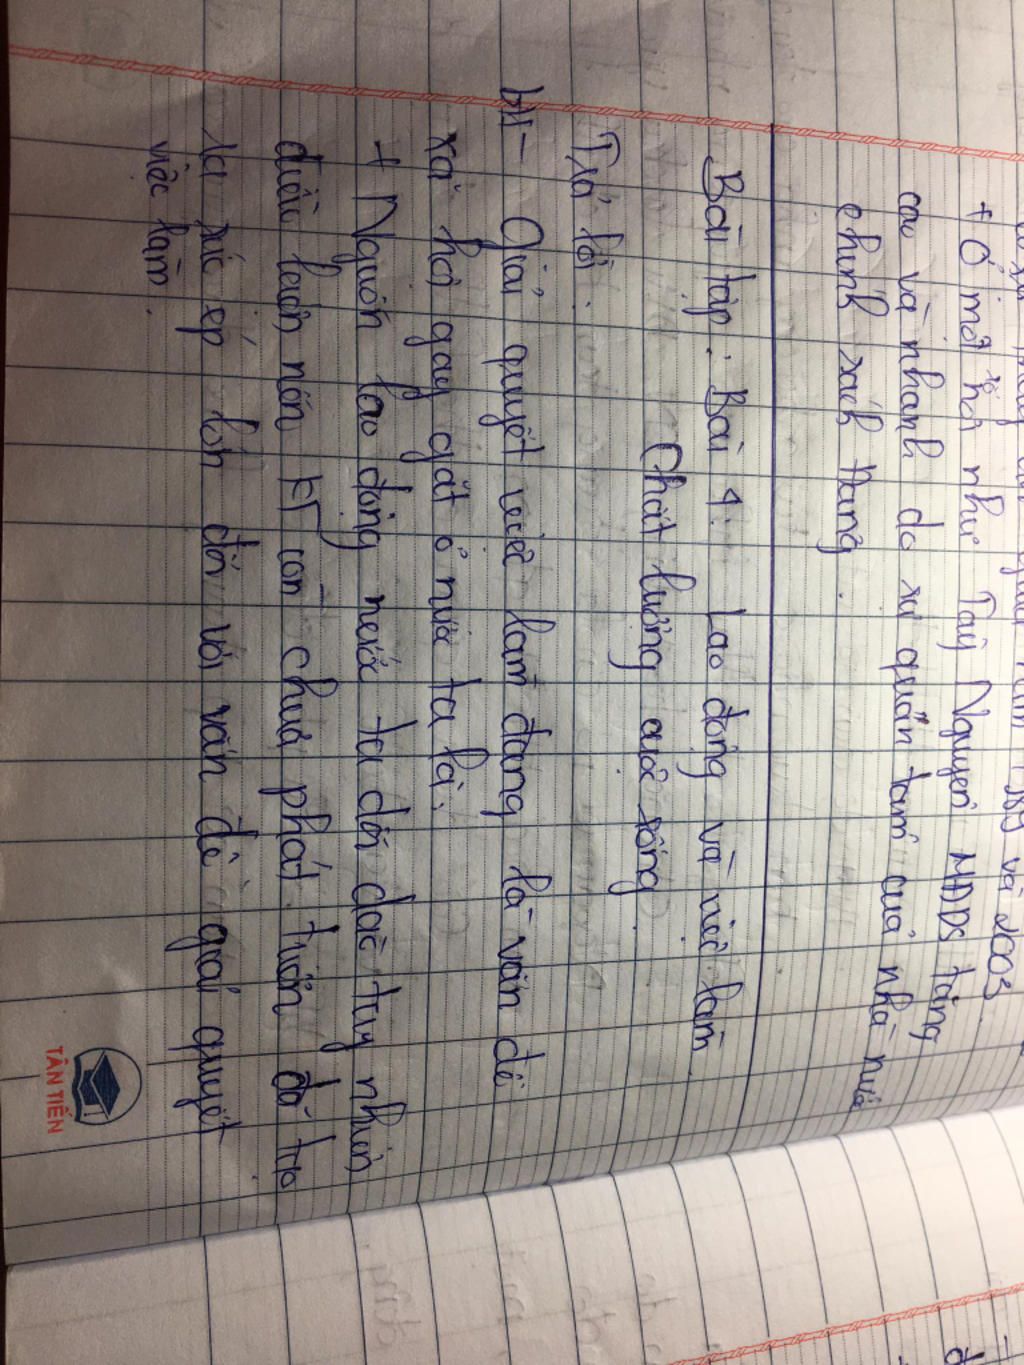 1989 và 2003
+ Ở một số nơi như Tây Nguyên MĐDS tăng
cao và nhanh do sự quan tâm của nhà nước
chính sách
Bài tập: Bài 4: Lao động và việc làm
Chất lượng cuộc sống
Trả lời:
bt1 - Giải quyết việc làm đang là vấn đề
xã hội gay gắt ở nước ta là:
+ Nguồn lao động nước ta dồi dào tuy nhiên
điều kiện nền KT còn chưa phát triển đã tạo
ra sức ép lớn đối với vấn đề giải quyết
việc làm.
TÂN TIẾN